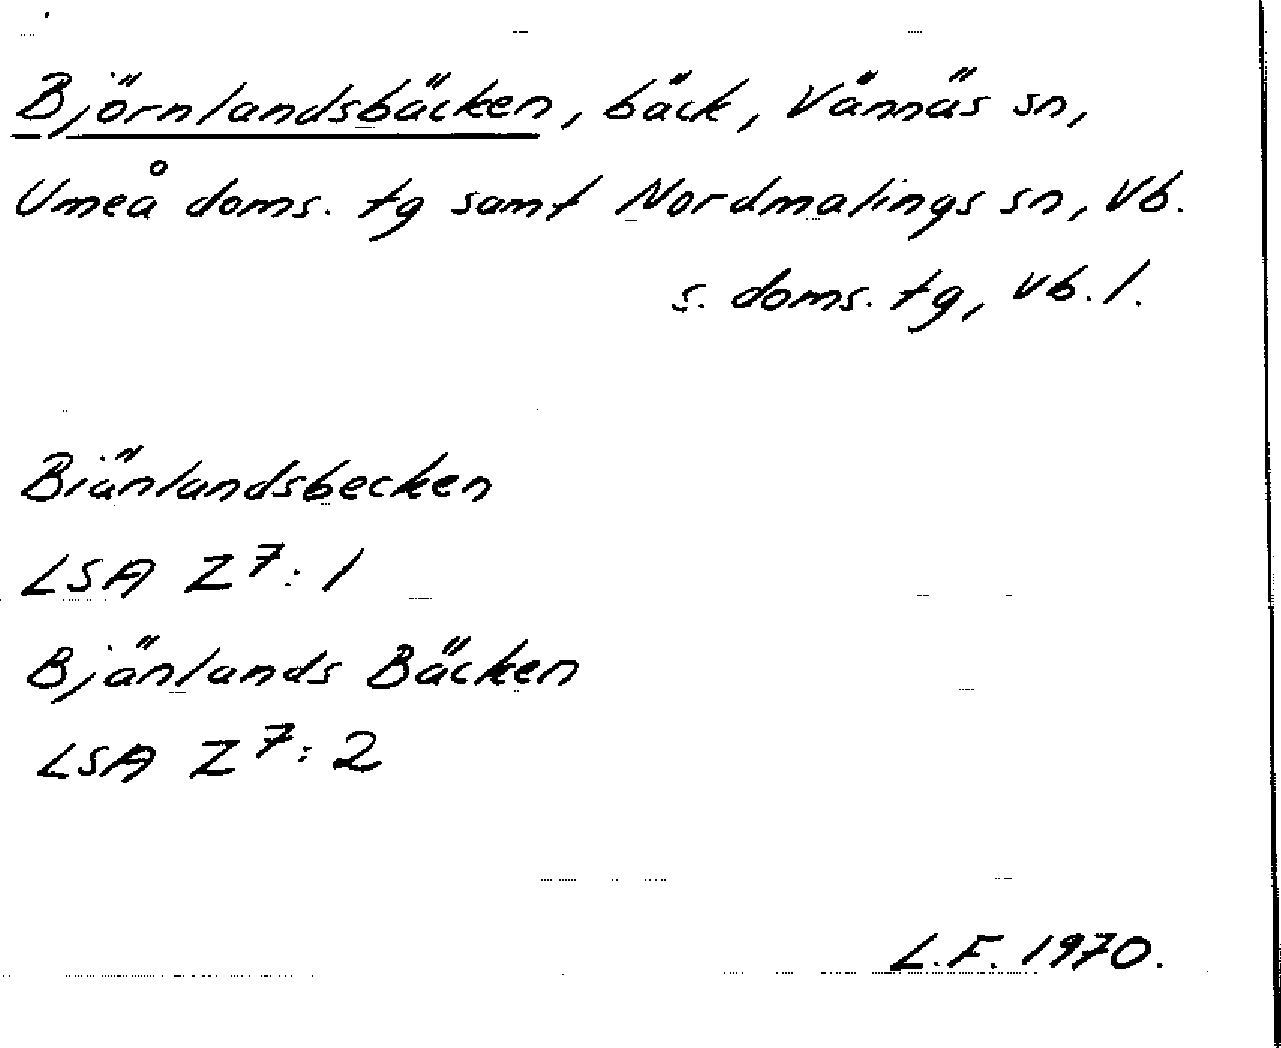 Björnlandsbäcken, bäck, Vännäs sn,
Umeå doms. tg samt Nordmalings sn, Vb.
s. doms. tg, Vb. l.
Biänlandsbecken
LSA Z 7:1
Bjänlands Bäcken
LSA Z 7:2
L.F. 1970.